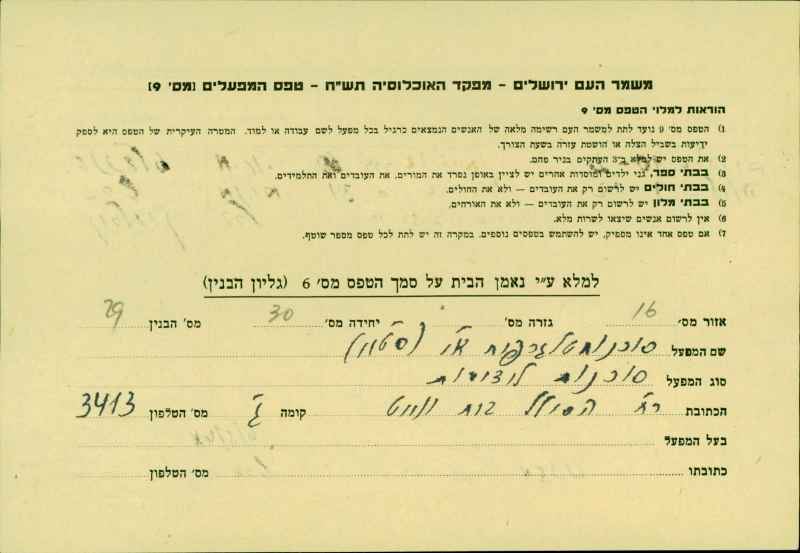 משמר העם ירושלים – מפקד האוכלוסיה תש״ח – טפס המפעלים (מס׳ 9)
הוראות למלוי הטפס מס׳ 9
1) הטפס מס׳ 9 נועד לתת למשמר העם רשימה מלאה של האנשים הנמצאים כרגיל בכל מפעל לשם עבודה או למוד. המטרה העיקרית של הטפס היא לספק
ידיעות בשביל הצלה או הושטת עזרה בשעת הצורך.
2) את הטפס יש למלא ב־3 העתקים בניר פחם.
3) בבתי ספר, גני ילדים ומוסדות אחרים יש לציין באופן נפרד את המורים, את העובדים ואת התלמידים.
4) בבתי חולים יש לרשום רק את העובדים — ולא את החולים.
5) בבתי מלון יש לרשום רק את העובדים — ולא את האורחים.
6) אין לרשום אנשים שיצאו לשרות מלא.
7) אם טפס אחד אינו מספיק, יש להשתמש בטפסים נוספים. במקרה זה יש לתת לכל טפס מספר שוטף.
למלא ע״י נאמן הבית על סמך הטפס מס׳ 6 (גליון הבנין)
אזור מס׳ 16 גזרה מס׳ יחידה מס׳ 30 מס׳ הבנין 29
שם המפעל סוכנות טלגרפית
סוג המפעל סוכנות לידיעות
הכתובת רח׳ הסולל בית קומה ג׳ מס׳ הטלפון 3413
בעל המפעל
כתובתו מס׳ הטלפון